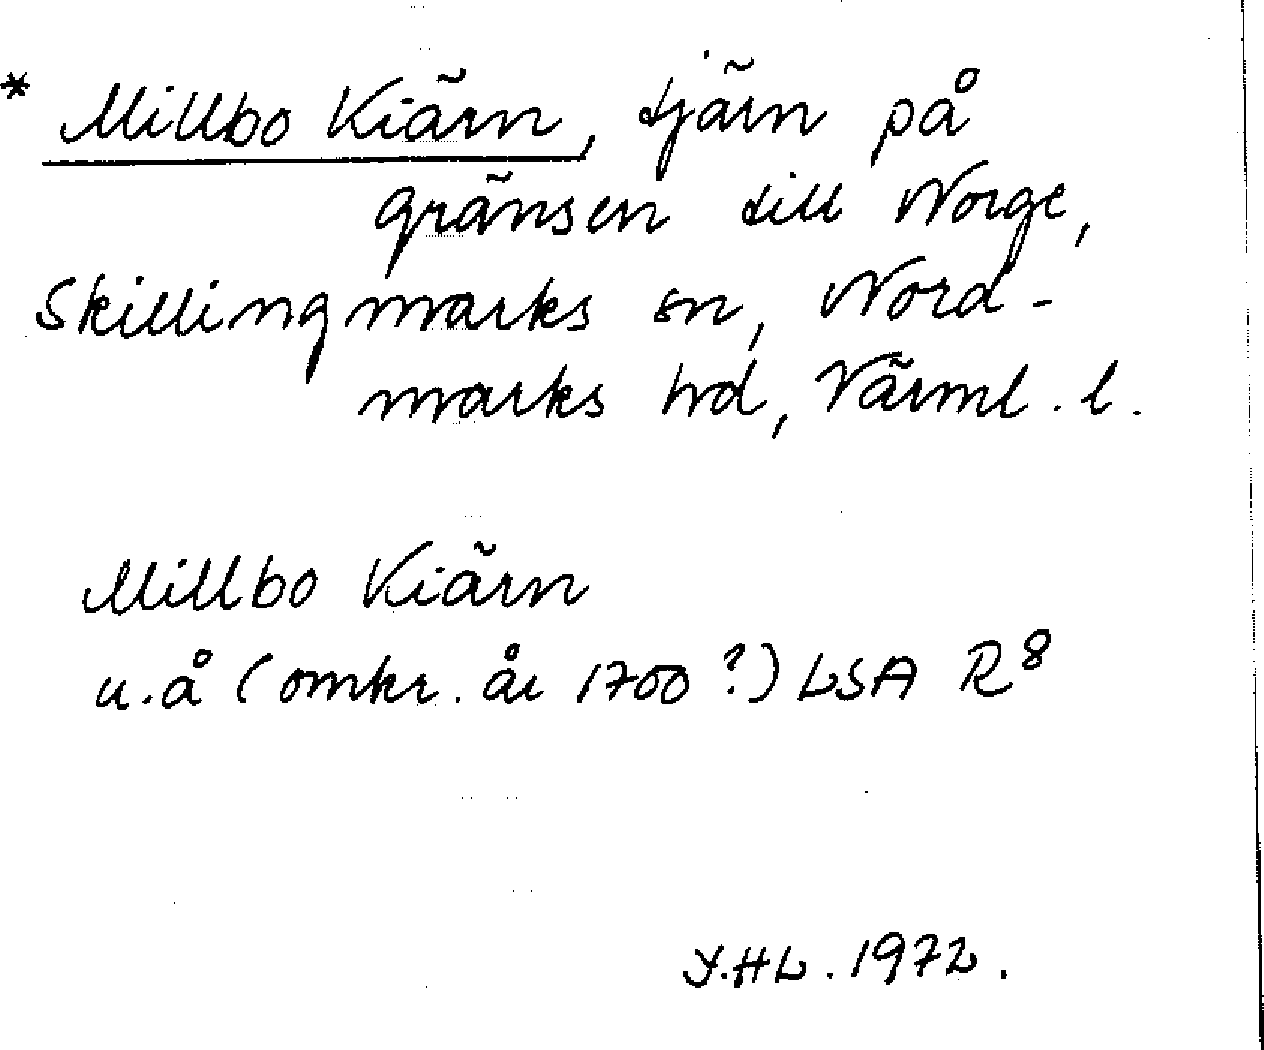 * Millbo Kiärn, tjärn på
gränsen till Norge,
Skillingmarks sn, Nord-
marks hd, Värml. l.
Millbo Kiärn
u.å (omkr. år 1700?) LSA R8
Y.HL. 1972.